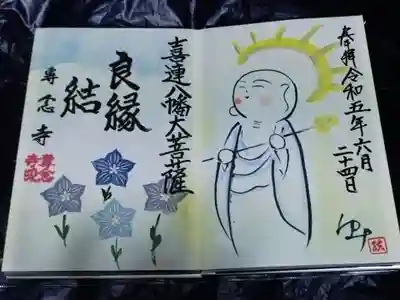 奉拝令和五年六月
二十四日
喜連八幡大菩薩
良縁
結
専念寺